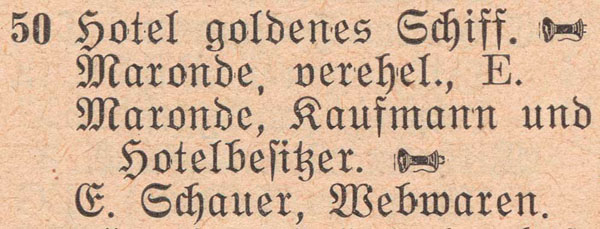 50 Hotel goldenes Schiff.
Maronde, verehel., E.
Maronde, Kaufmann und
Hotelbesitzer.
E. Schauer, Webwaren.